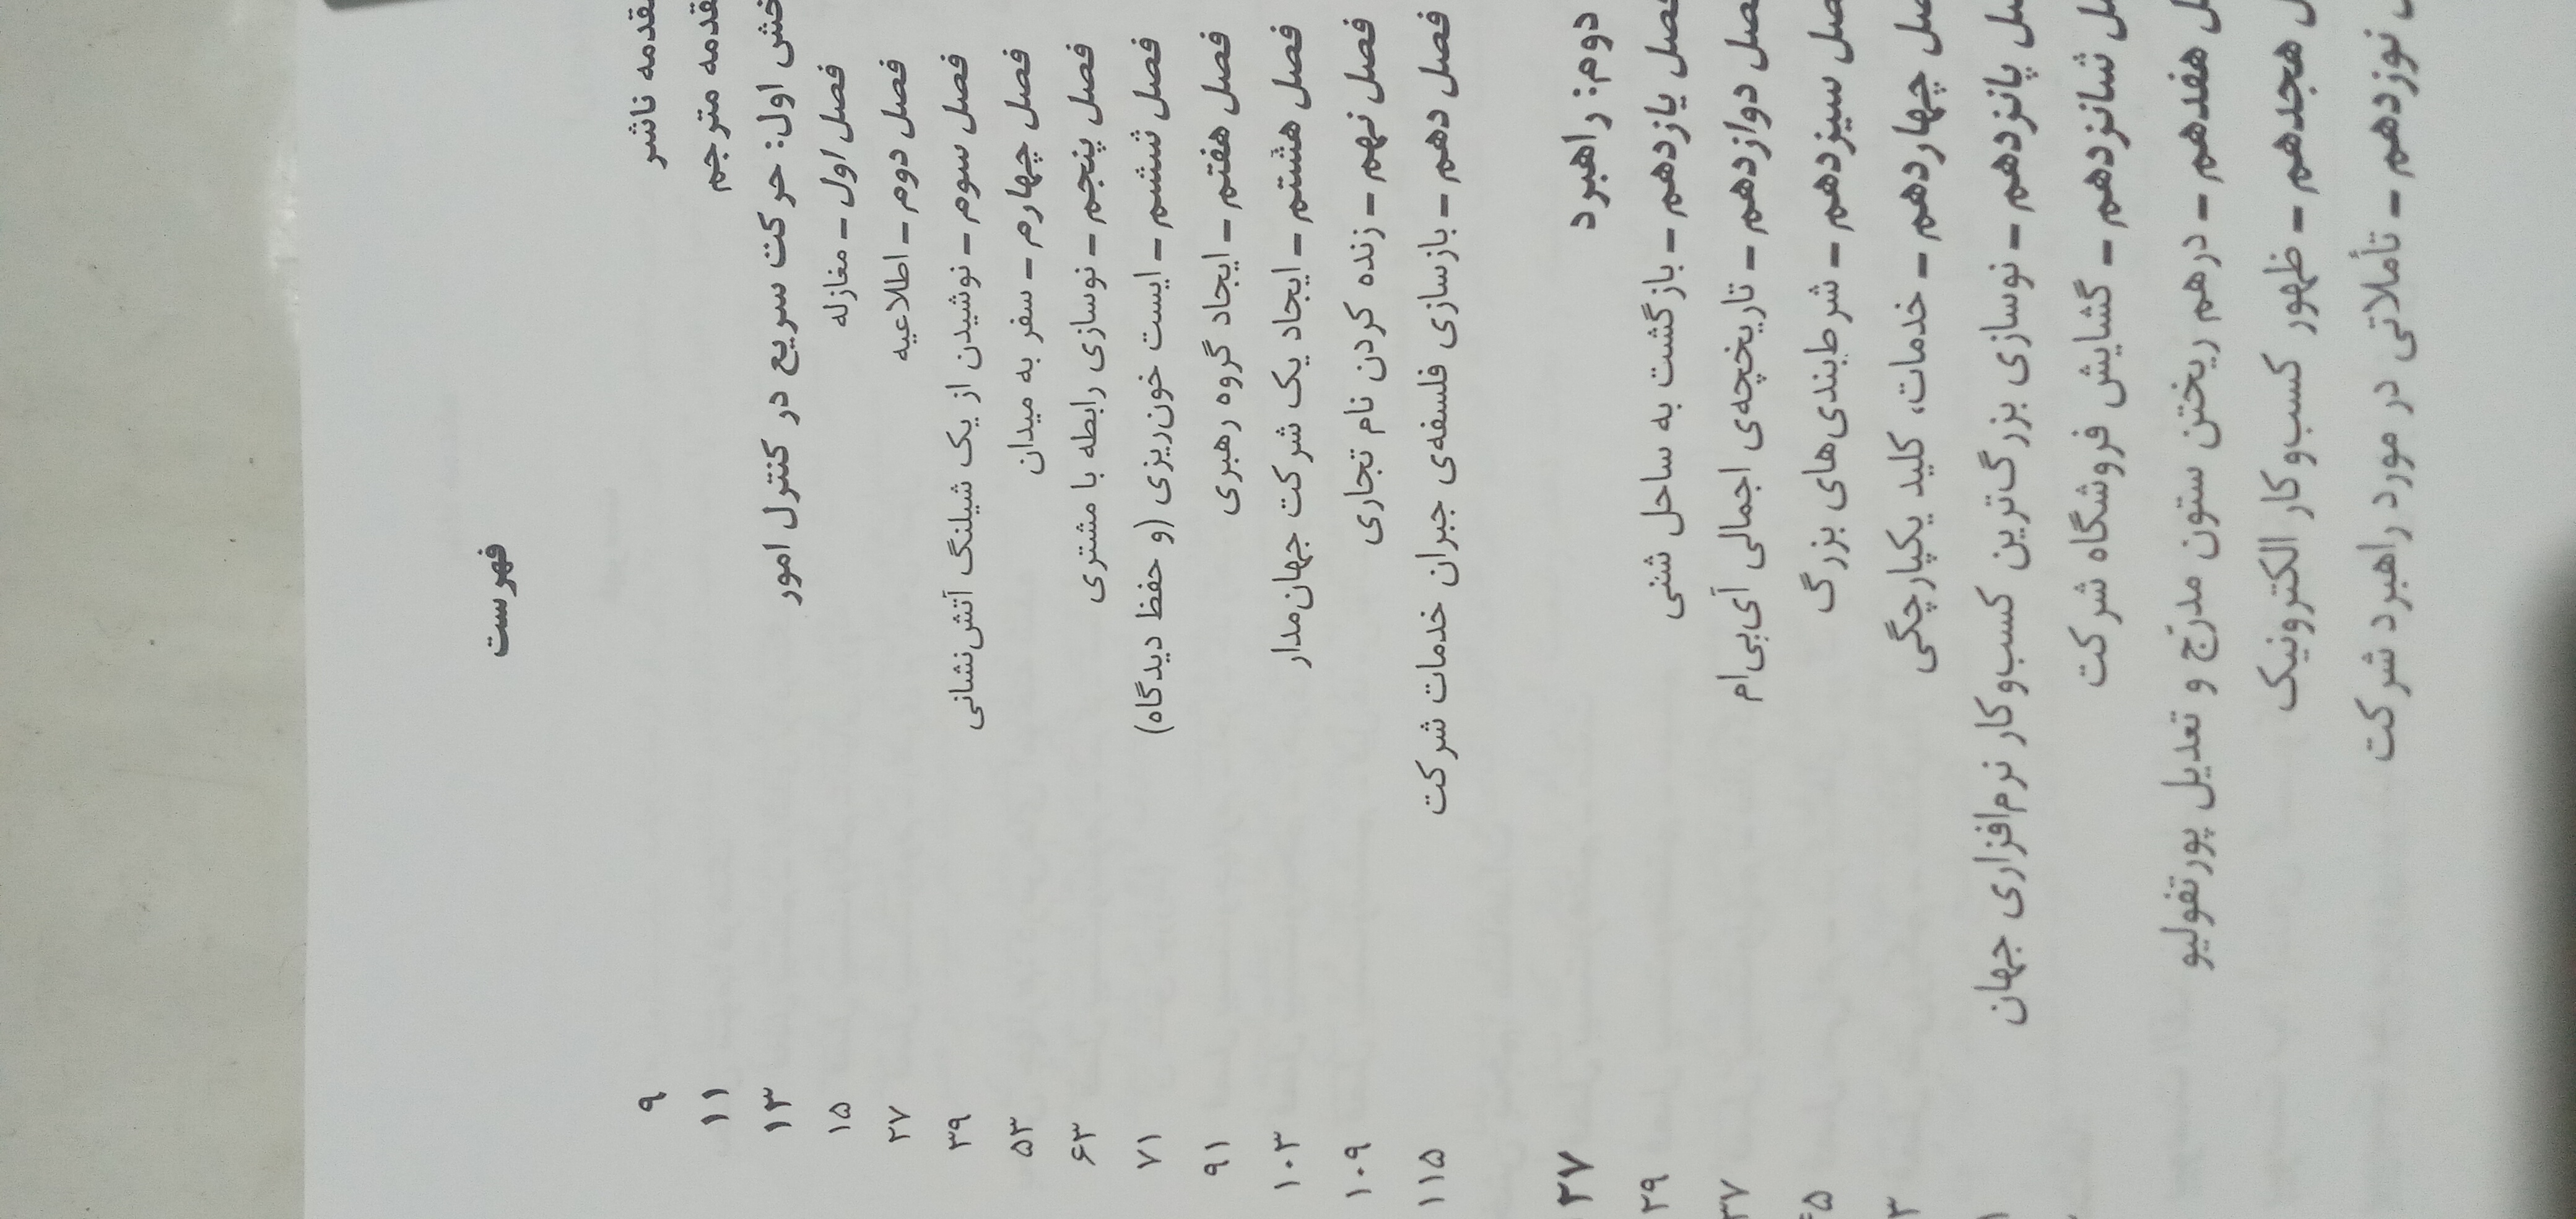 فهرست
مقدمه ناشر ۹
مقدمه مترجم ۱۱
بخش اول: حرکت سریع در کنترل امور ۱۳
فصل اول - مغازله ۱۵
فصل دوم - اطلاعیه ۲۷
فصل سوم - نوشیدن از یک شیلنگ آتش‌نشانی ۳۹
فصل چهارم - سفر به میدان ۵۳
فصل پنجم - نوسازی رابطه با مشتری ۶۳
فصل ششم - ایست خون‌ریزی (و حفظ دیدگاه) ۷۱
فصل هفتم - ایجاد گروه رهبری ۹۱
فصل هشتم - ایجاد یک شرکت جهان‌مدار ۱۰۳
فصل نهم - زنده کردن نام تجاری ۱۰۹
فصل دهم - بازسازی فلسفه‌ی جبران خدمات شرکت ۱۱۵
دوم: راهبرد ۲۷
فصل یازدهم - بازگشت به ساحل شنی ۲۹
فصل دوازدهم - تاریخچه‌ی اجمالی آی‌بی‌ام ۳۷
صل سیزدهم - شرط‌بندی‌های بزرگ ۴۵
صل چهاردهم - خدمات، کلید یکپارچگی ۳
صل پانزدهم - نوسازی بزرگ‌ترین کسب‌وکار نرم‌افزاری جهان
ل شانزدهم - گشایش فروشگاه شرکت
ل هفدهم - درهم ریختن ستون مدرّج و تعدیل پورتفولیو
ل هجدهم - ظهور کسب‌وکار الکترونیک
نوزدهم - تأملاتی در مورد راهبرد شرکت